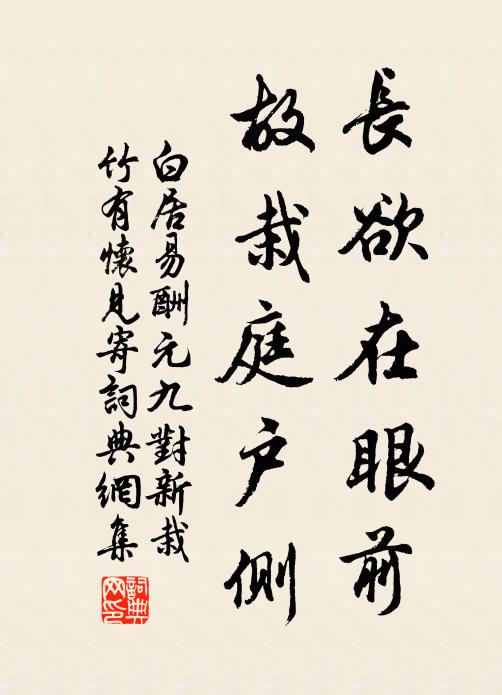 長欲在眼前
故栽庭户側
白居易酬元九對新栽
竹有懷見寄詞典網集
詞典
网印